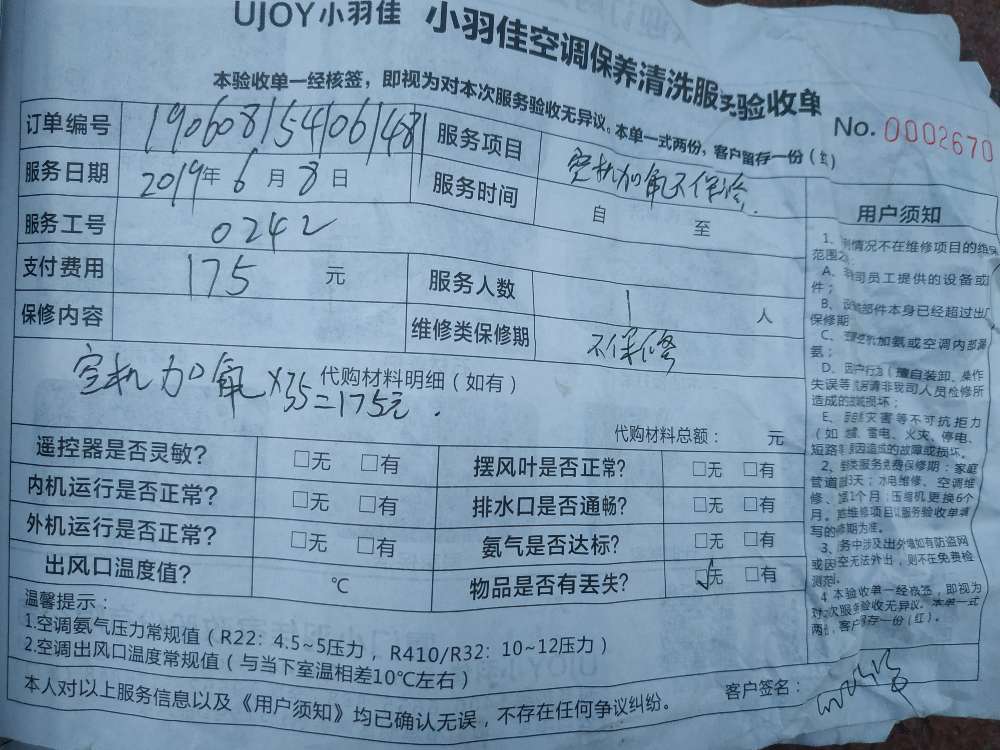 UJOY小羽佳 小羽佳空调保养清洗服务验收单
本验收单一经核签，即视为对本次服务验收无异议。本单一式两份，客户留存一份（红）
No. 0002670
订单编号 190608154106148 服务项目 空机加氟不保修.
服务日期 2019年6月8日 服务时间 自 至
服务工号 0242
支付费用 175 元 服务人数 1 人
保修内容 维修类保修期 不保修
空机加氟×35=175元. 代购材料明细（如有）
代购材料总额： 元
遥控器是否灵敏? □无 □有 摆风叶是否正常? □无 □有
内机运行是否正常? □无 □有 排水口是否通畅? □无 □有
外机运行是否正常? □无 □有 氨气是否达标? □无 □有
出风口温度值? ℃ 物品是否有丢失? □无 □有
温馨提示：
1.空调氨气压力常规值（R22: 4.5~5压力，R410/R32: 10~12压力）
2.空调出风口温度常规值（与当下室温相差10℃左右）
本人对以上服务信息以及《用户须知》均已确认无误，不存在任何争议纠纷。
客户签名：
用户须知
1、 情况不在维修项目的维保
范围之
A、 司员工提供的设备或
件；
B、设 部件本身已经超过出厂
保修期
C、 加氨或空调内部漏
氨；
D、因户行为（擅自装卸、操作
失误等 请非我司人员检修所
造成的 损坏；
E、 灾害等不可抗拒力
（如 雷电、火灾、停电、
短路等 因造成的故障或损坏。
2、 类服务免费保修期：家庭
管道 3天；水电维修、空调维
修、 1个月；压缩机更换6个
月。 维修项目以服务验收单填
写的 修期为准。
3、 务中涉及出外墙如有防盗网
或因空无法外出，则不在免费检
测范
4、本验收单一经核签，即视为
对本次服务验收无异议。本单一式
两份，客户留存一份（红）。